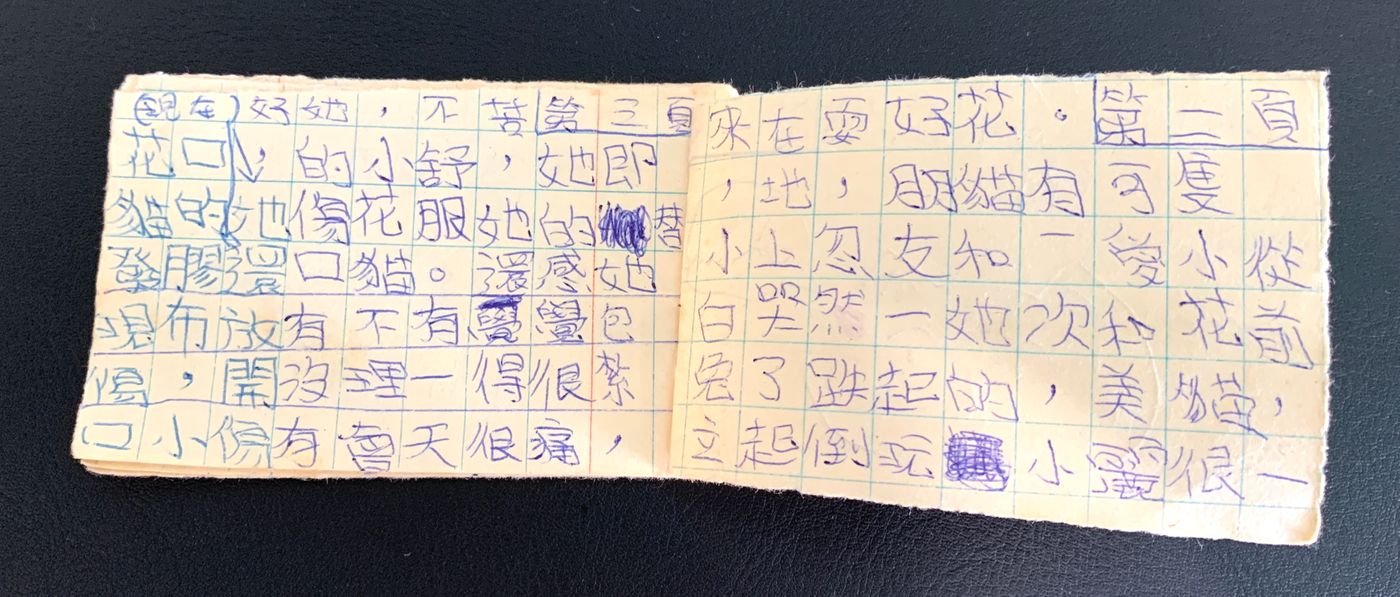 第二頁
從前，一
隻小花貓很
可愛和美麗
。有一次，小
花貓和她的
好朋友一起玩
耍，忽然跌倒
在地上哭了起
來，小白兔立
第三頁
即替她包紮，
她的感覺很痛
苦，她還覺得很
不舒服。有一天
，小花貓不理會
她的傷口有沒有
好，她還放開傷
現在
口的膠布，小
花貓發現傷口